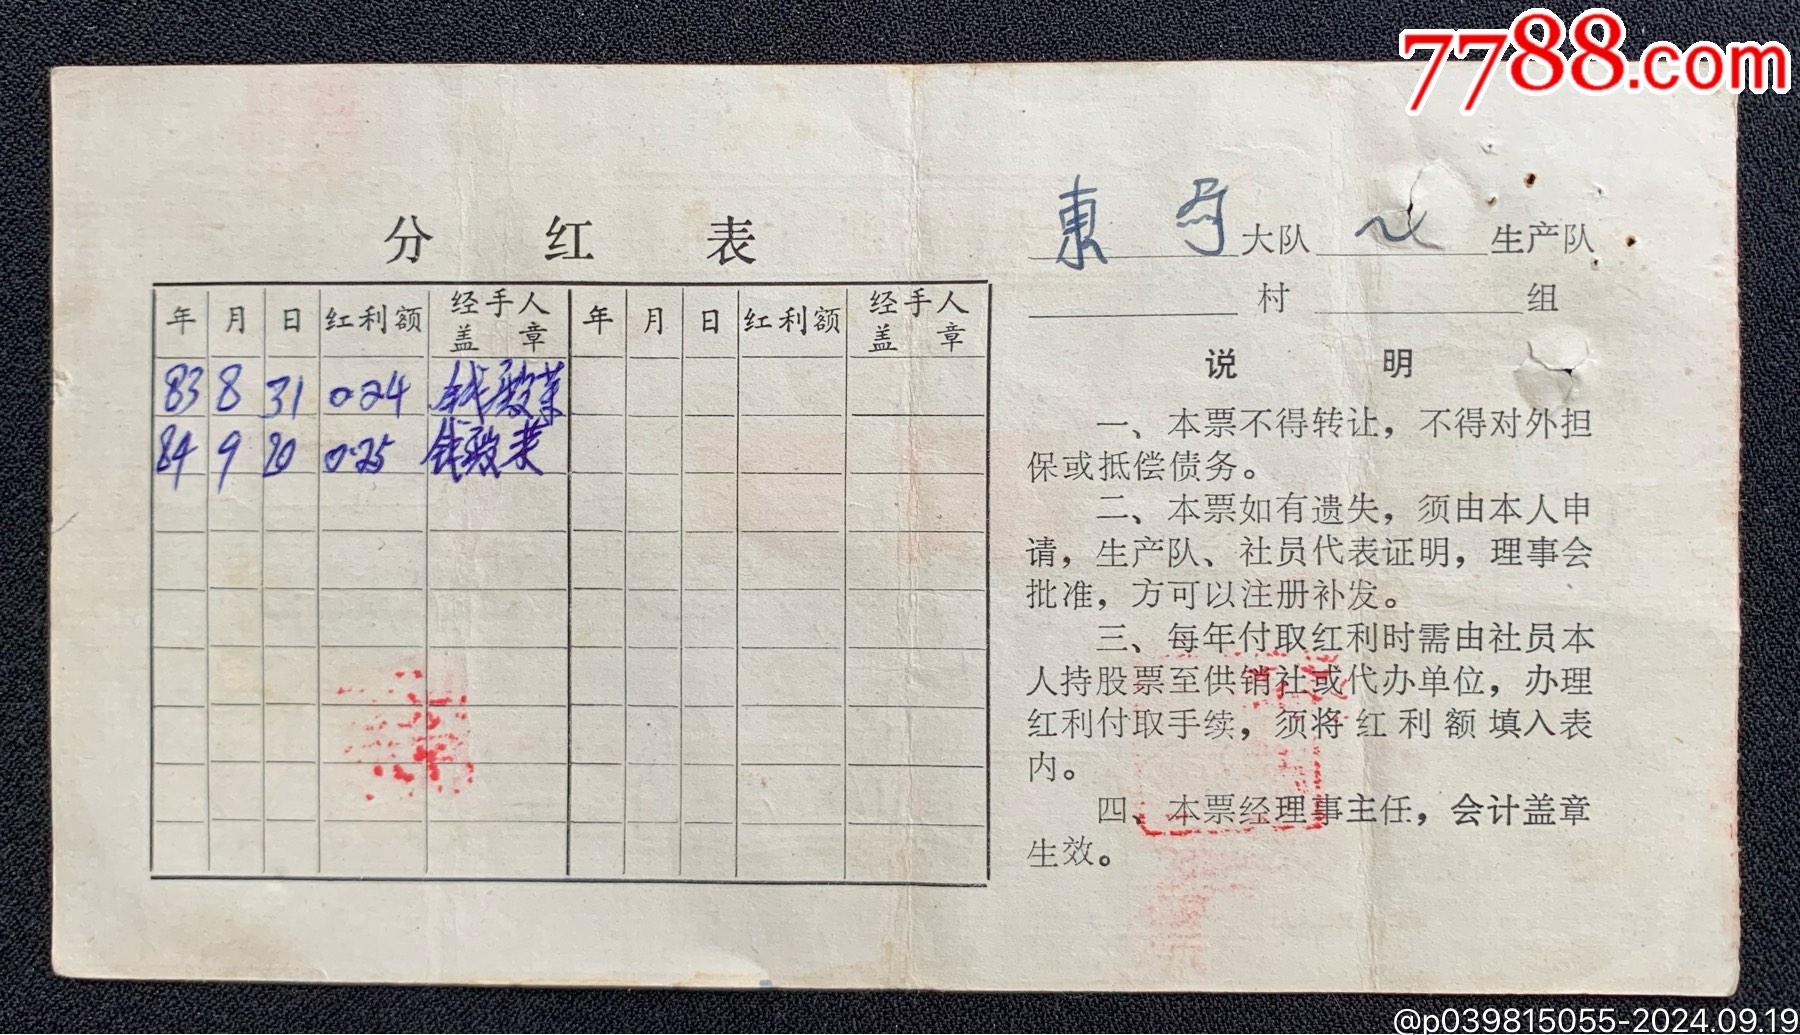 7788.com
分红表
年 月 日 红利额 经手人盖章 年 月 日 红利额 经手人盖章
83 8 31 0.24
84 9 20 0.25
東 大队 生产队
村 组
说明
一、本票不得转让，不得对外担
保或抵偿债务。
二、本票如有遗失，须由本人申
请，生产队、社员代表证明，理事会
批准，方可以注册补发。
三、每年付取红利时需由社员本
人持股票至供销社或代办单位，办理
红利付取手续，须将红利额填入表
内。
四、本票经理事主任，会计盖章
生效。
@p039815055-2024.09.19